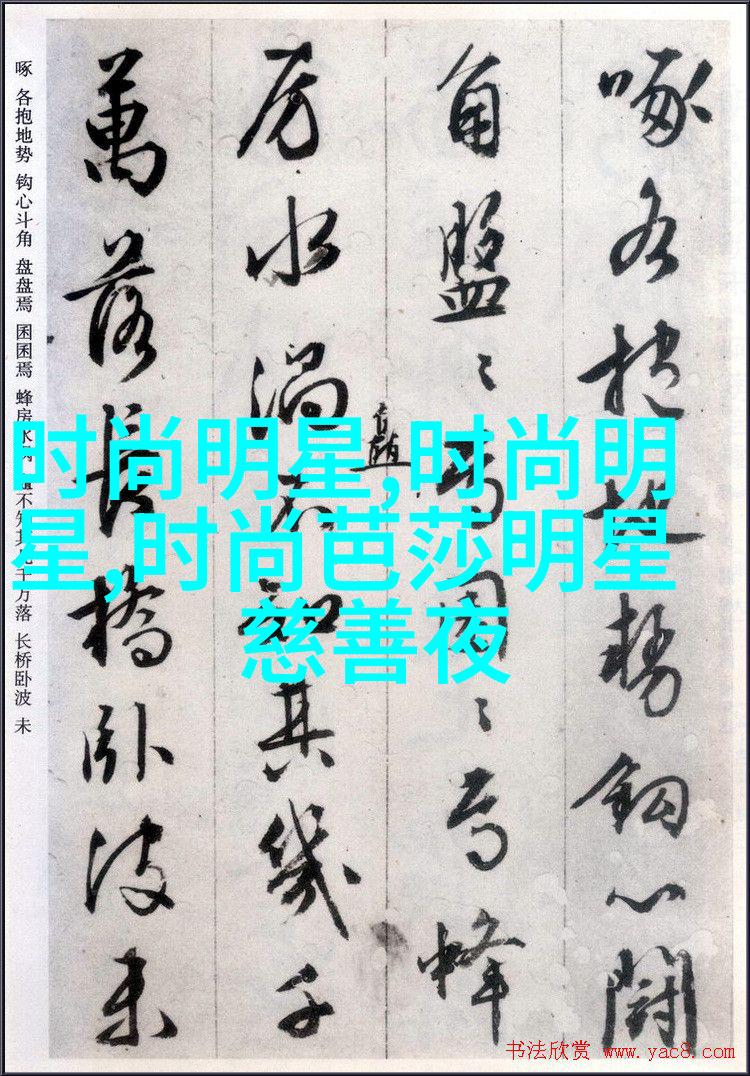 啄各抱地勢鈎心鬪
角盤〻焉囷〻焉蜂
房水渦矗不知其幾千
萬落長橋卧波未
啄 各抱地势 钩心斗角 盘盘焉 囷囷焉 蜂房水涡 矗不知其几千万落 长桥卧波 未
时尚明星,时尚明
星,时尚芭莎明星
慈善夜
书法欣赏 www.yac8.com